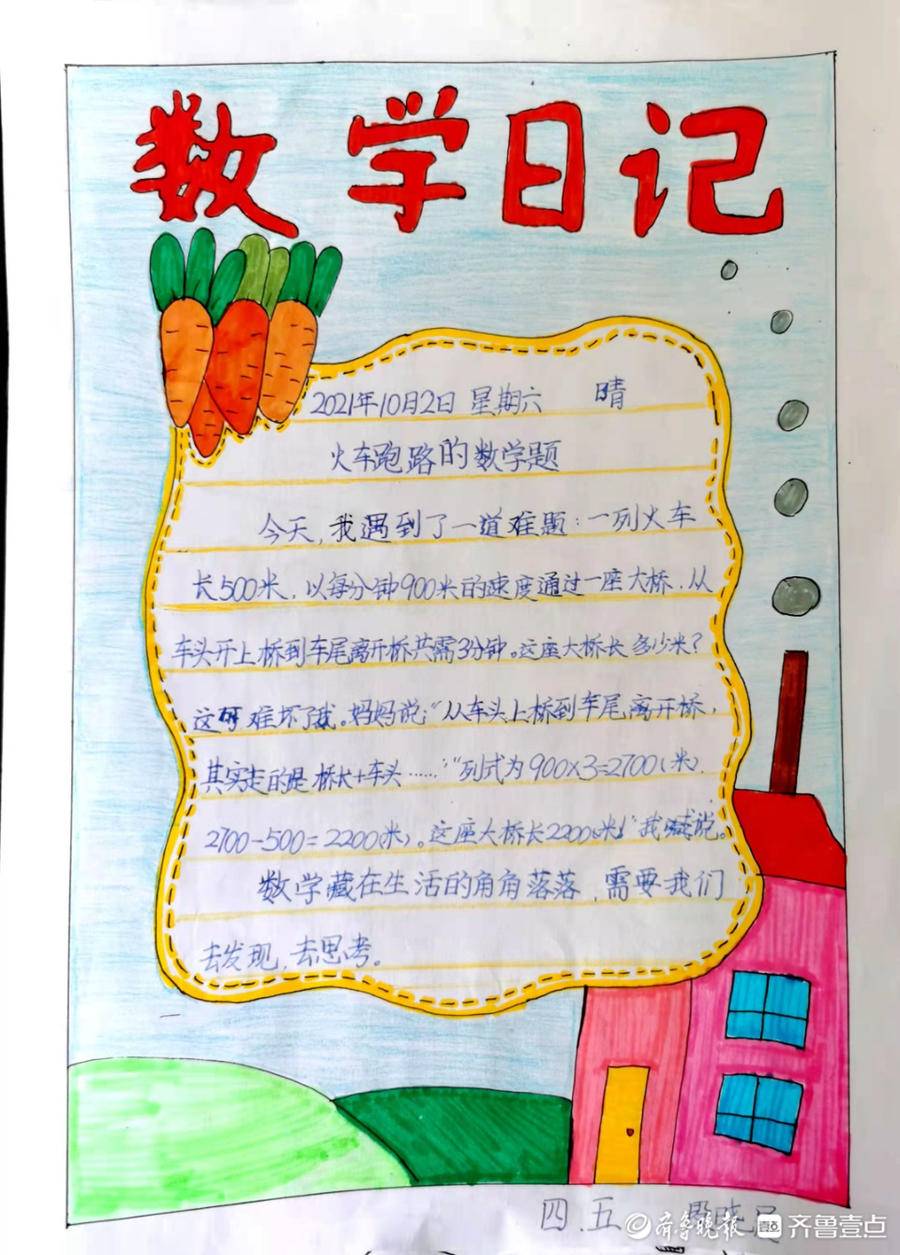 数学日记
2021年10月2日 星期六 晴
火车跑路的数学题
今天,我遇到了一道难题:一列火车
长500米,以每分钟900米的速度通过一座大桥,从
车头开上桥到车尾离开桥共需3分钟。这座大桥长多少米?
这可难坏了我。妈妈说:“从车头上桥到车尾离开桥,
其实走的是桥长+车头……”“列式为900×3=2700(米),
2700-500=2200(米)。这座大桥长2200(米)!”我说。
数学藏在生活的角角落落,需要我们
去发现,去思考。
四.五
齐鲁晚报 齐鲁壹点